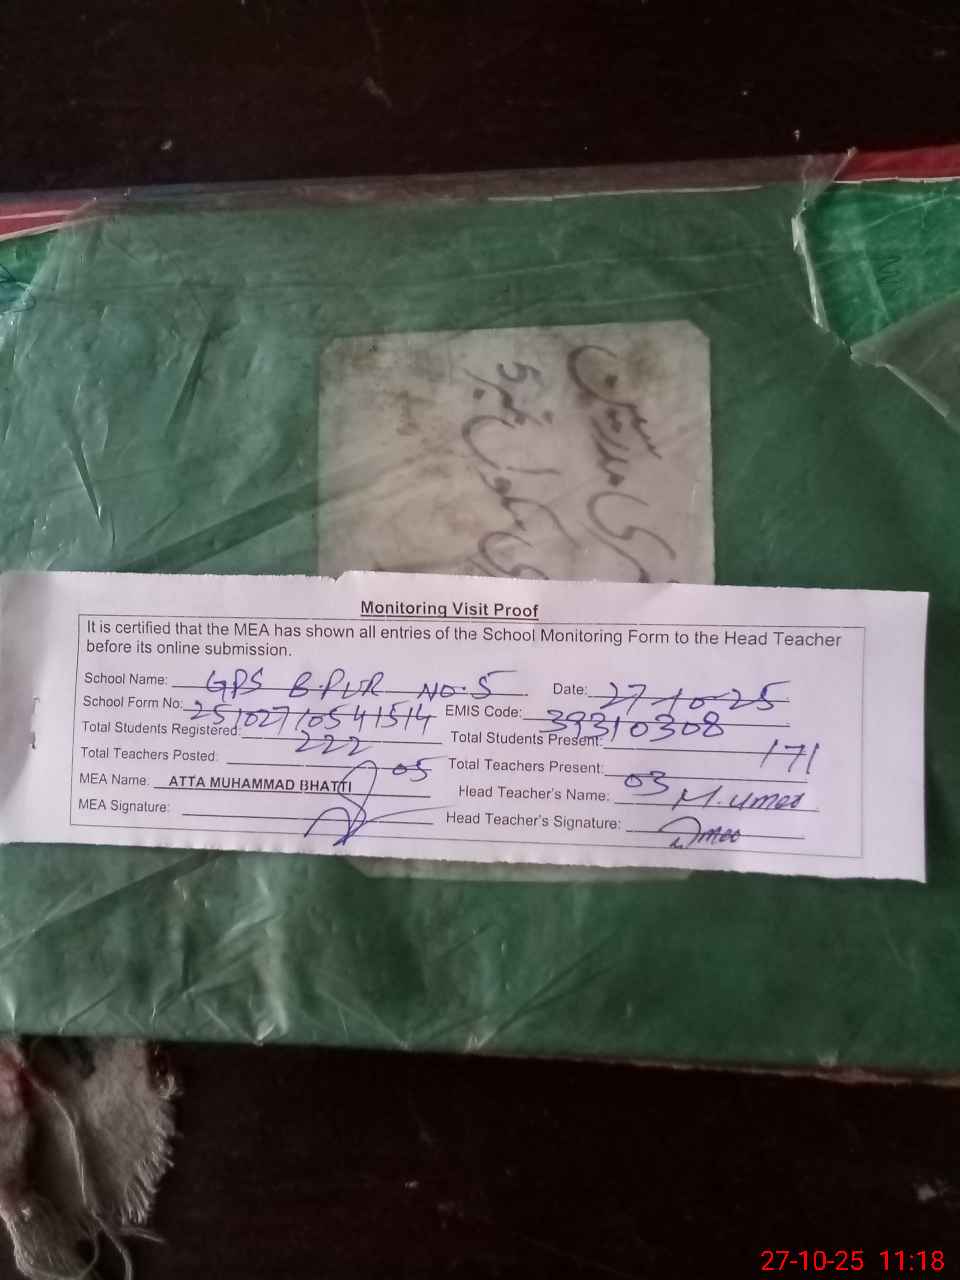 Monitoring Visit Proof
It is certified that the MEA has shown all entries of the School Monitoring Form to the Head Teacher
before its online submission.
School Name: GPS B.PUR NO.5 Date: 27-10-25
School Form No: 25102710541514 EMIS Code: 39310308
Total Students Registered: 222 Total Students Present: 171
Total Teachers Posted: 05 Total Teachers Present: 03
MEA Name: ATTA MUHAMMAD BHATTI Head Teacher's Name: M. umer
MEA Signature: Head Teacher's Signature: Umer
27-10-25 11:18